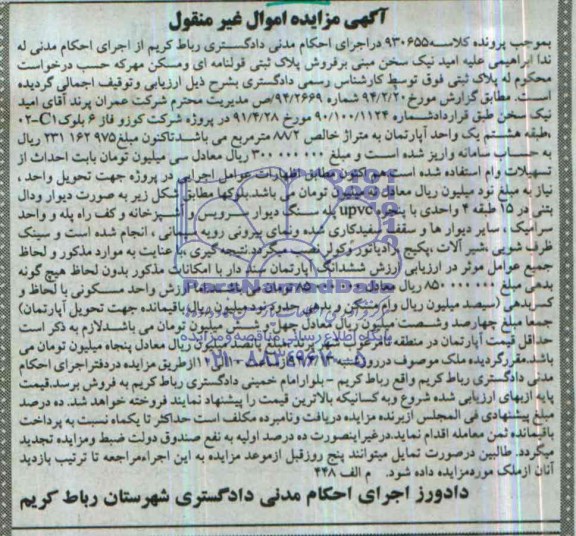 آگهی مزایده اموال غیر منقول
بموجب پرونده کلاسه۹۳۰۶۵۵ دراجرای احکام مدنی دادگستری رباط کریم از اجرای احکام مدنی له
ندا ابراهیمی علیه امید نیک سخن مبنی برفروش پلاک ثبتی قولنامه ای ومسکن مهرکه حسب درخواست
محکوم له پلاک ثبتی فوق توسط کارشناس رسمی دادگستری بشرح ذیل ارزیابی وتوقیف اجمالی گردیده
است. مطابق گزارش مورخ۹۴/۲/۲۰ شماره ۹۴/۲۶۶۹/ص مدیریت محترم شرکت عمران پرند آقای امید
نیک سخن طبق قراردادشماره ۹۰/۱۰۰/۱۱۲۴ مورخ ۹۱/۴/۲۸ در پروژه شرکت کوزو فاز ۶ بلوک C1-۰۲
،طبقه هشتم یک واحد آپارتمان به متراژ خالص ۸۸/۲ مترمربع می باشد.تاکنون مبلغ۹۷۵ ۱۶۲ ۲۳۱ ریال
به حساب سامانه واریز شده است و مبلغ ۳۰۰ ریال معادل سی میلیون تومان بابت احداث از
تسهیلات وام استفاده شده است هم اکنون مطابق اظهارات عوامل اجرایی در پروژه جهت تحویل واحد ،
نیاز به مبلغ نود میلیون ریال معادل نه میلیون تومان می باشد.بلوکها مطابق شکل زیر به صورت دیوار ودال
بتنی در ۱۵ طبقه ۴ واحدی با پنجره upvc پله سنگ دیوار سرویس و آشپزخانه و کف راه پله و واحد
سرامیک ، سایر دیوار ها و سقف سفیدکاری شده ونمای بیرونی رویه سیمانی ، انجام شده است و سینک
ظرف شویی ،شیر آلات ،پکیج ،رادیاتور وکولر نصب میگردد.نتیجه گیری :با عنایت به موارد مذکور و لحاظ
جمیع عوامل موثر در ارزیابی ارزش ششدانگ آپارتمان سند دار با امکانات مذکور بدون لحاظ هیچ گونه
بدهی مبلغ ۸۵۰۰۰۰۰۰۰ ریال معادل ۸۵ تومان می باشد ارزش واحد مسکونی با لحاظ و
کسربدهی (سیصد میلیون ریال وام مسکن و بدهی حدود نود میلیون ریال باقیمانده جهت تحویل آپارتمان)
جمعا مبلغ چهارصد وشصت میلیون ریال معادل چهل و شش میلیون تومان می باشد.لازم به ذکر است
حداقل قیمت آپارتمان در منطقه ریال معادل پنجاه میلیون تومان می
باشد.مقررگردیده ملک موصوف درروز ازطریق مزایده دردفتراجرای احکام
مدنی دادگستری رباط کریم واقع رباط کریم -بلوارامام خمینی دادگستری رباط کریم به فروش برسد.قیمت
پایه ازبهای ارزیابی شده شروع وبه کسانیکه بالاترین قیمت را پیشنهاد نمایند فروخته خواهد شد. ده درصد
مبلغ پیشنهادی فی المجلس ازبرنده مزایده دریافت ونامبرده مکلف است حداکثر تا یکماه نسبت به پرداخت
باقیمانده ثمن معامله اقدام نماید.درغیراینصورت ده درصد اولیه به نفع صندوق دولت ضبط ومزایده تجدید
میگردد. طالبین درصورت تمایل میتوانند پنج روزقبل ازموعد مزایده به این اجراءمراجعه تا ترتیب بازدید
آنان ازملک موردمزایده داده شود. م الف ۴۴۸
دادورز اجرای احکام مدنی دادگستری شهرستان رباط کریم
پایگاه اطلاع رسانی مناقصه و مزایده